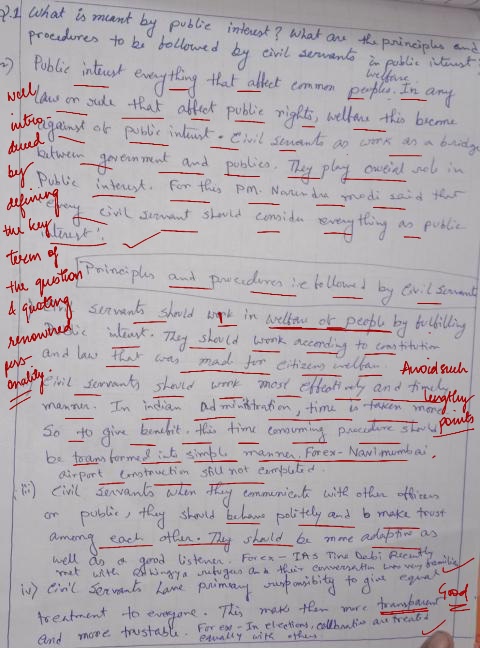 Q.1 What is meant by public interest? What are the principles and
procedures to be followed by civil servants in public interest?
Public interest everything that affect common peoples welfare. In any
law or rule that affect public rights, welfare this become
against of public interest. Civil servants as work as a bridge
between government and publics. They play crucial role in
Public interest. For this PM. Narendra modi said that
every civil servant should consider everything as public
interest'.
well
intro-
duced
by
defining
the key
term of
the question
& quoting
renowned
pers-
onality.
Principles and procedures i:e followed by civil servants
servants should work in welfare of people by fulfilling
Public interest. They should work according to constitution
and law that was made for citizens welfare.
Civil servants should work most effectively and timely
manner. In indian administration, time is taken more
So to give benefit. this time consuming procedure should
be transformed into simple manner. For ex- Navi mumbai
airport construction still not completed.
Avoid such
lengthy
points
iii) Civil servants when they communicate with other officers
or public, they should behave politely and make trust
among each other. They should be more adaptive as
well as a good listener. For ex - IAS Tina Dabi Recently
met with refugees and their conversation was very familiar
iv) Civil servants have primary responsibity to give equal
treatment to everyone. This make them more transparent
and more trustable. For ex- In elections, celebrities are treated
equally with others.
Good